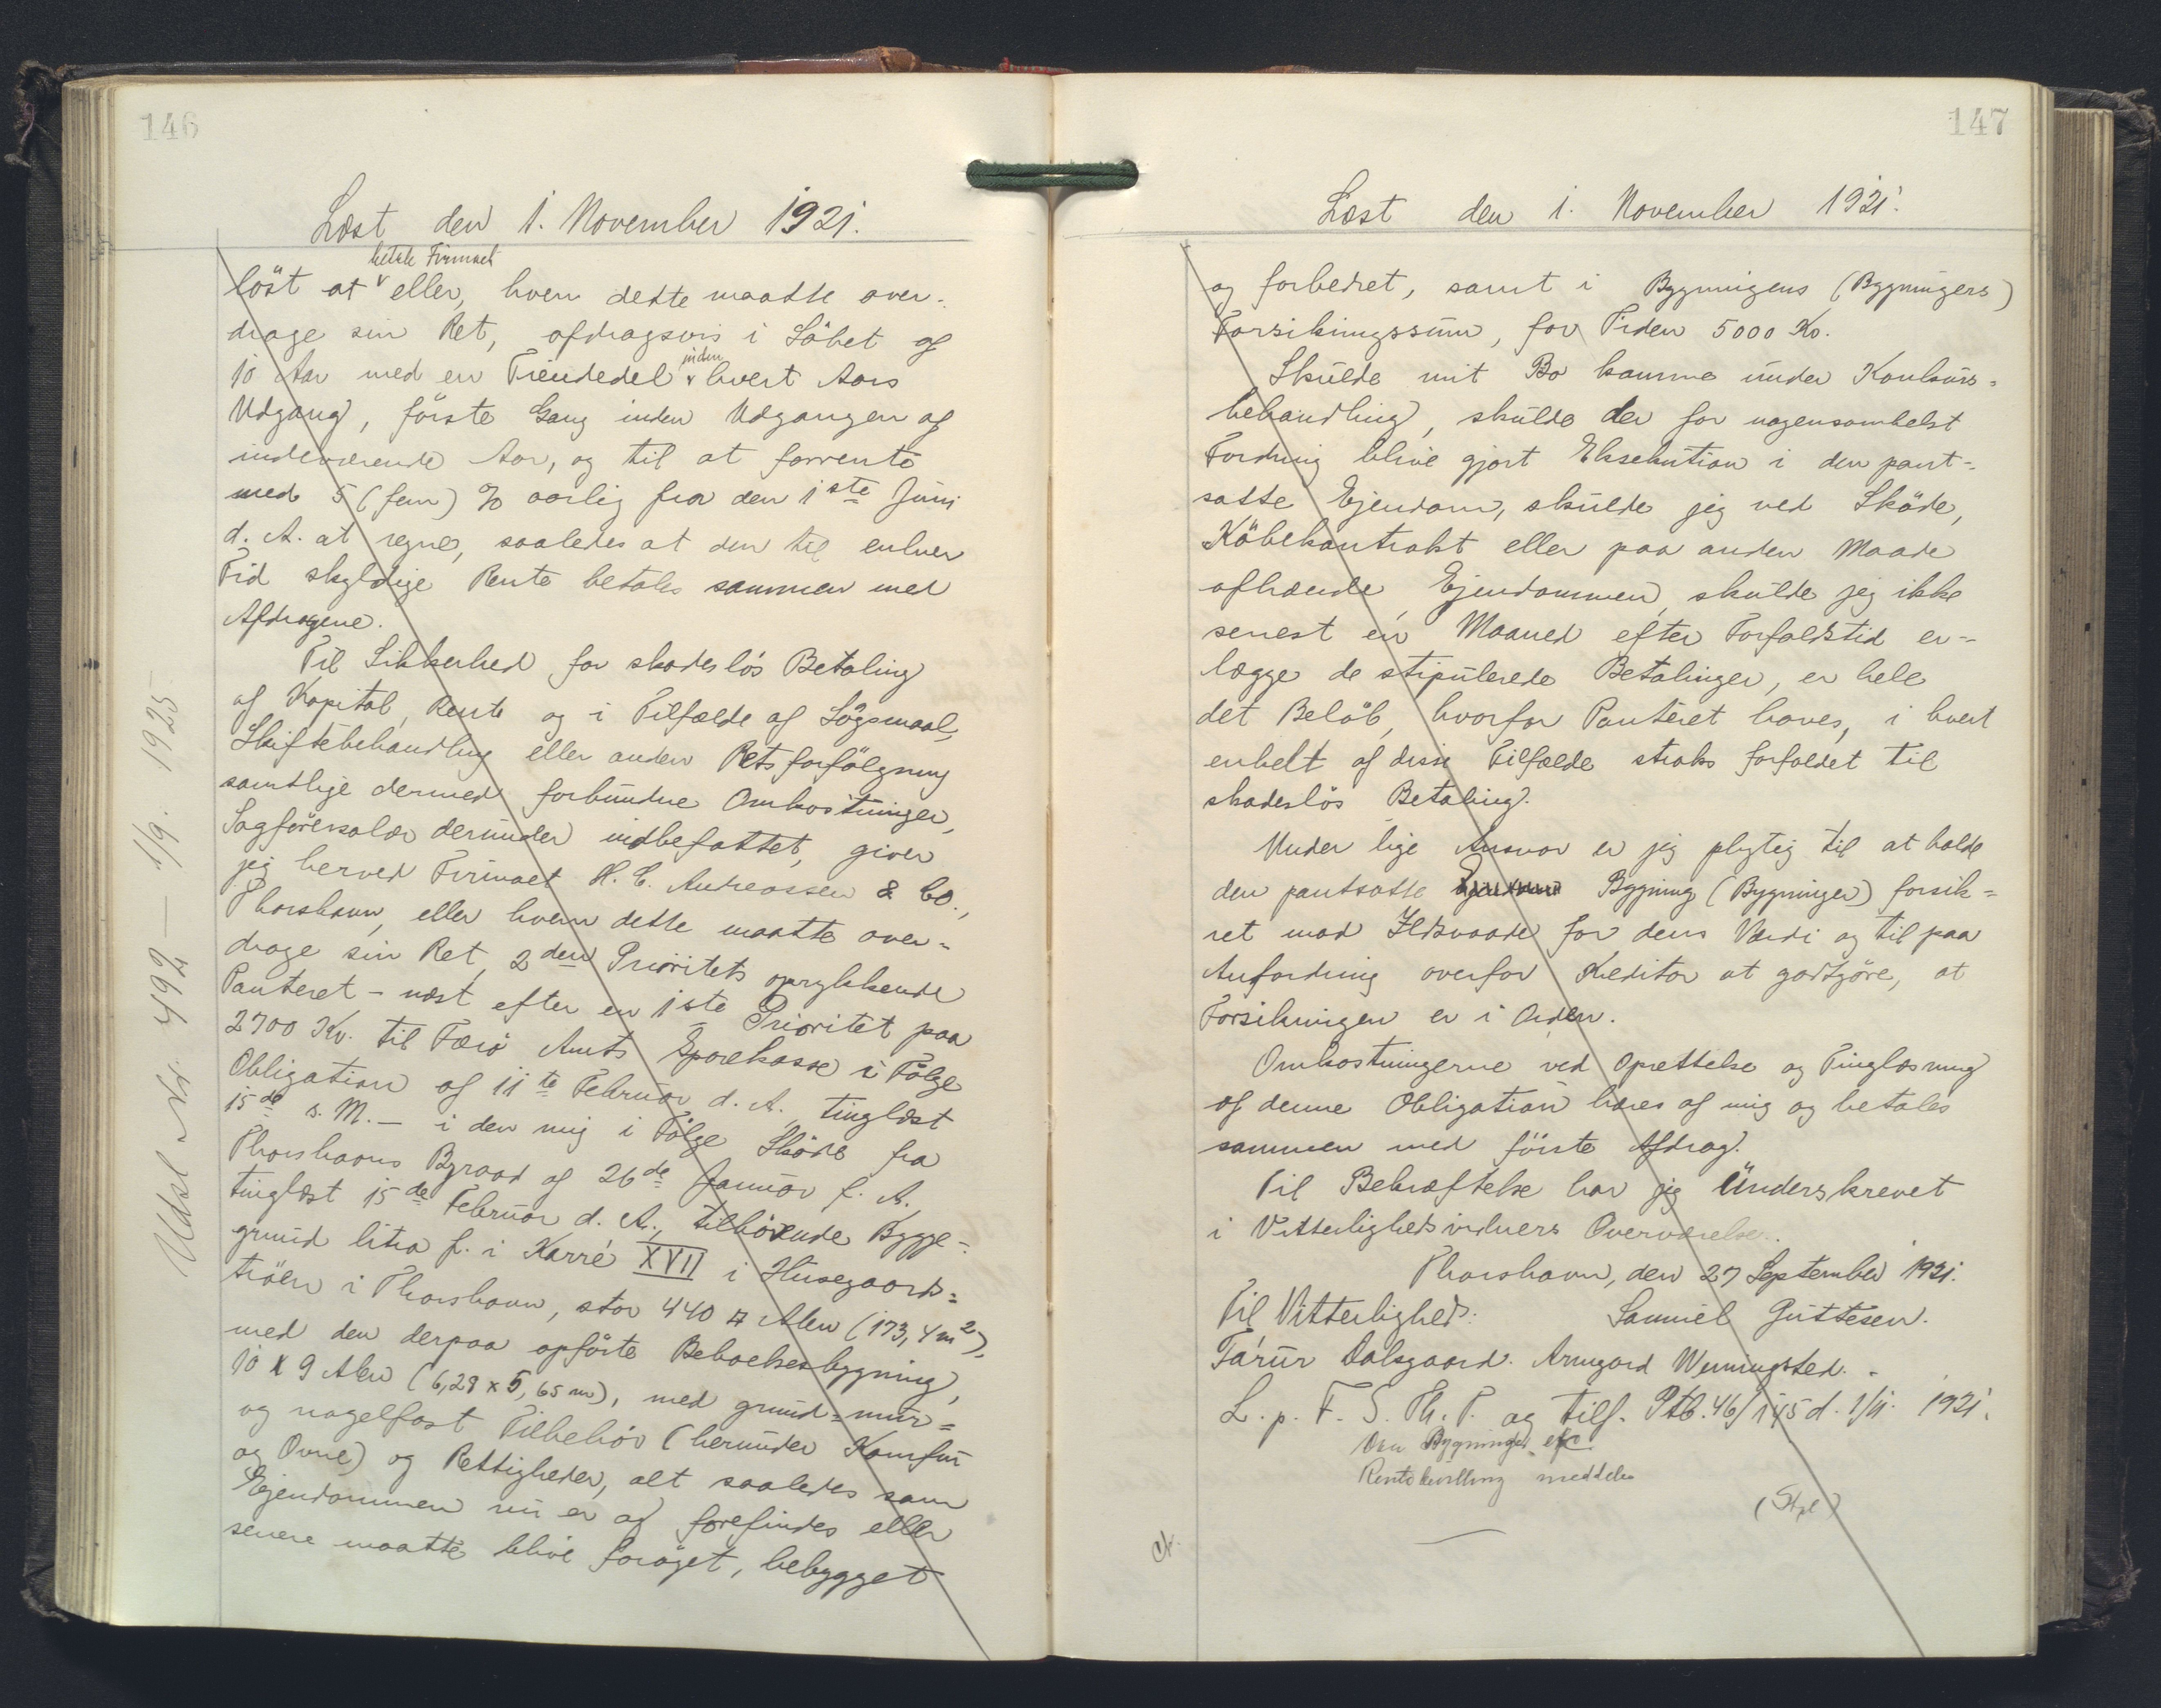 146
Læst den 1. November 1921.
betale Firmaet
löst at v eller, hvem dette maatte over-
drage sin Ret, afdragsvis i Löbet af
inden
10 Aar med en Tiendedel v hvert Aars
Udgang, förste Gang inden Udgangen af
indeværende Aar, og til at forrente
med 5 (fem) % aarlig fra den 1ste Juni
d. A. at regne, saaledes at den til enhver
Tid skyldige Rente betales sammen med
Afdragene.
Til Sikkerhed for skadeslös Betaling
af Kapital, Rente og i Tilfælde af Sögsmaal,
Skiftebehandling eller anden Retsforfölgning
samtlige dermed forbundne Omkostninger,
Sagförersalær derunder indbefattet, giver
jeg herved Firmaet H. C. Andreassen & Co.,
Thorshavn, eller hvem dette maatte over-
drage sin Ret, 2den Prioritets oprykkende
Panteret - næst efter en 1ste Prioritet paa
2700 Kr. til Færö Amts Sparekasse i Fölge
Obligation af 11te Februar d. A., tinglæst
15de s. M. - i den mig i Fölge Sköde fra
Thorshavns Byraad af 26de Januar f. A.
tinglæst 15de Februar d. A., tilhörende Bygge-
grund litra f. i Karré XVII i Húsagaards-
tröen i Thorshavn, stor 440 □ Alen (173,4 m2),
med den derpaa opförte Beboelsesbygning,
10 x 9 Alen (6,28 x 5,65 m), med grund- mur-
og nagelfast Tilbehör (herunder Komfur
og Ovne) og Rettigheder, alt saaledes som
Ejendommen nu er og forefindes eller
senere maatte blive foröget, bebygget
Udsl. Nr. 492 — 1/9. 1925.
147
Læst den 1. November 1921.
og forbedret, samt i Bygningens (Bygningers)
Forsikringssum, for Tiden 5000 Kr.
Skulde mit Bo komme under Konkurs-
behandling, skulde der for nogensomhelst
Fordring blive gjort Eksekution i den pant-
satte Ejendom, skulde jeg ved Sköde,
Köbekontrakt eller paa anden Maade
afhænde Ejendommen, skulde jeg ikke
senest en Maaned efter Forfaldstid er-
lægge de stipulerede Betalinger, er hele
det Belöb, hvorfor Panteret haves, i hvert
enkelt af disse Tilfælde straks forfaldet til
skadeslös Betaling.
Under lige Ansvar er jeg pligtig til at holde
den pantsatte Ejendom Bygning (Bygninger) forsik-
ret mod Ildsvaade for dens Værdi og til paa
Anfordring overfor Kreditor at godtgöre, at
Forsikringen er i Orden.
Omkostningerne ved Oprettelse og Tinglæsning
af denne Obligation bæres af mig og betales
sammen med förste Afdrag.
Til Bekræftelse har jeg Underskrevet
i Vitterlighedsvidners Overværelse.
Thorshavn, den 27 September 1921.
Til Vitterlighed: Samuel Guttesen.
Tárur Dalsgaard. Armgard Wenningsted.
L. p. F. S. Th. T. og tilf. Ptb. 46/145 d. 1/11. 1921.
Om Bygningen etc.
Rentekvittring meddeles
(Stpl)